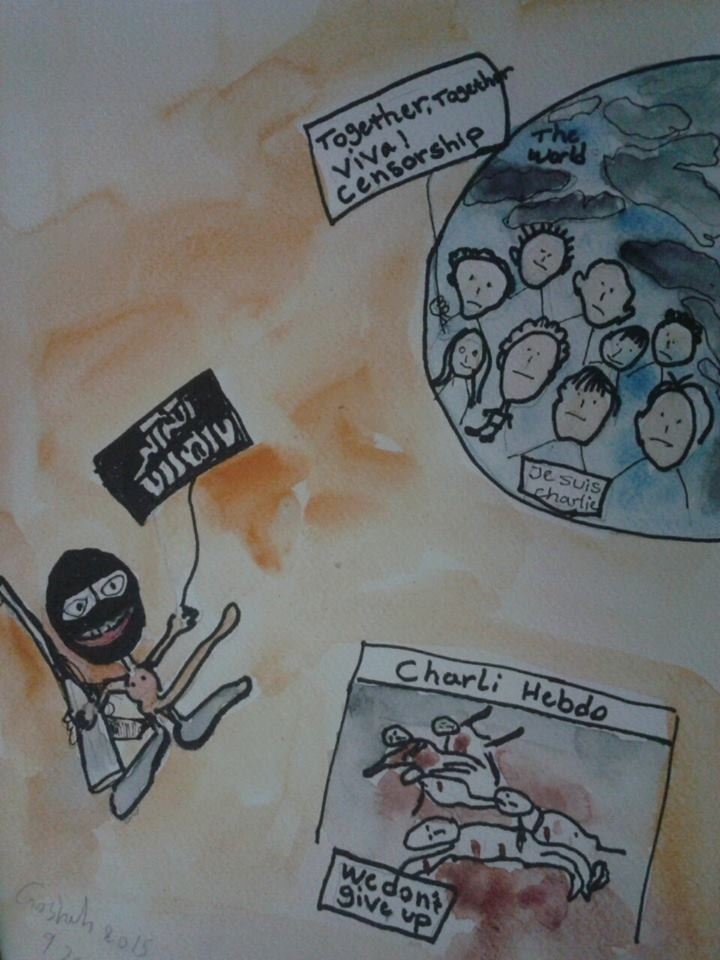 Together, Together
viva!
censorship
The
world
Je suis
charlie
Charli Hebdo
We don't
give up
2015